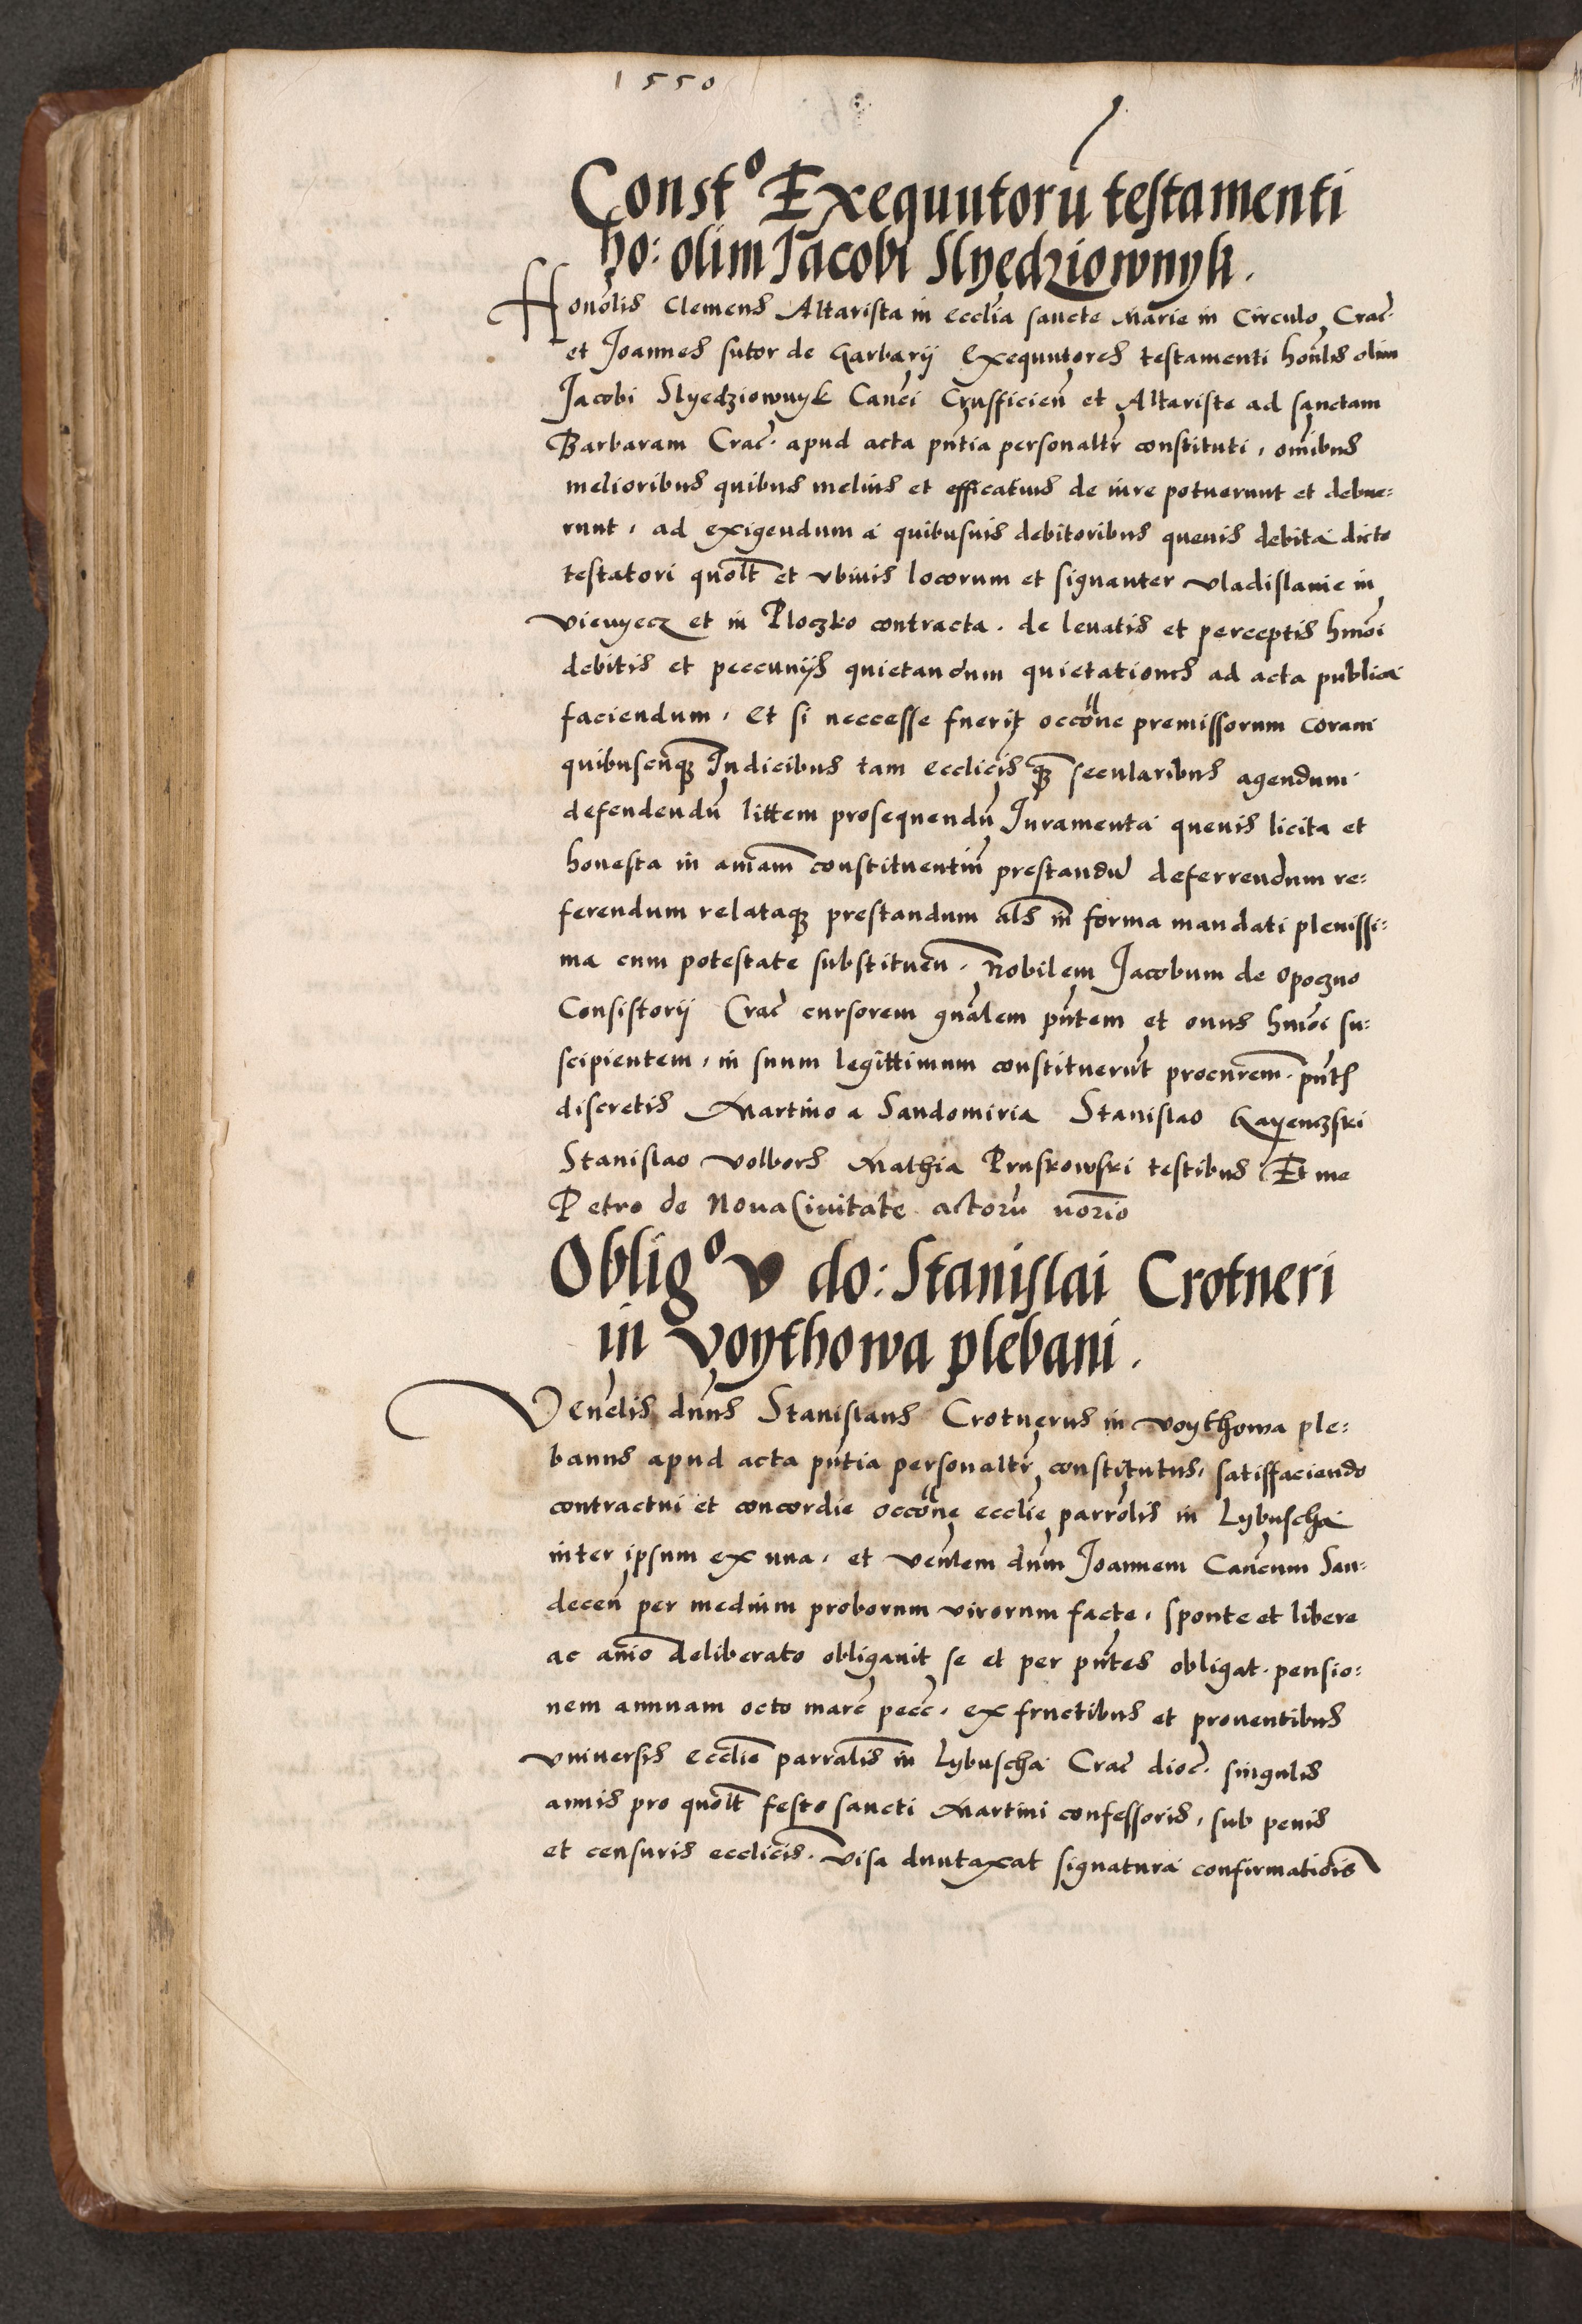 1550
Constº Exequutorū testamenti
ho: olim Jacobi Slyedziownyk.
Honōlis Clemens Altarista in ecclīa sancte Marie in Circulo Crac̄
et Joannes sutor de Garbarij Exequutores testamenti honl̄is olim
Jacobi Slyedziownyk Can̄ci Crusfficien̄ et Altariste ad sanctam
Barbaram Crac̄. apud acta pn̄tia personaltr̄ constituti, om̄ibus
melioribus quibus melius et efficatius de iure potuerunt et debue:
runt, ad exigendum a quibusuis debitoribus queuis debita dicto
testatori quolt̄ et vbiuis locorum et signanter Vladislauie in
Vieuyecz et in Ploczko contracta. de leuatis et perceptis hmōi
debitis et peccunijs quietandum quietationes ad acta publica
faciendum, Et si neccesse fuerit occōne premissorum coram
quibuscūq3 Iudicibus tam ecclīcis q3 secularibus agendum
defendendū littem prosequendū Iuramenta queuis licita et
honesta in ani̅am constituentiū prestandū deferrendum re:
ferendum relataq3 prestandum al̄s in forma mandati plenissi:
ma cum potestate substituen̄. Nobilem Jacobum de Opoczno
Consistorij Crac̄ cursorem gn̄alem pn̄tem et onus hmōi su:
scipientem, in suum legittimum constituerūt procurem̄. pn̄t
discretis Martino a Sandomiria Stanislao Gayenczski
Stanislao Volbors Mathia Pruskowski testibus Et me
Petro de Noua Ciuitate actorū norīo
Obligº V do: Stanislai Crotneri
in Voythowa plebani.
Ven̄elis dn̄us Stanislaus Crotnerus in Voythowa ple:
banus apud acta pn̄tia personaltr̄ constitutus, satisfaciendo
contractui et concordie occōne ecclīe parrōlis in Lybuscha
inter ipsum ex una, et Ven̄lem dūm Joannem Can̄cum San:
decen̄ per medium proborum virorum facte, sponte et libere
ac anīo deliberato obligauit se et per pn̄tes obligat. pensio:
nem annuam octo marc̄ pecc̄. ex fructibus et prouentibus
vniuersis ecclīe parralīs in Lybuscha Crac̄ dioc̄. singulis
annis pro quolt̄ festo sancti Martini confessoris, sub penis
et censuris ecclīcis. Visa duntaxat signatura confirmatiōis